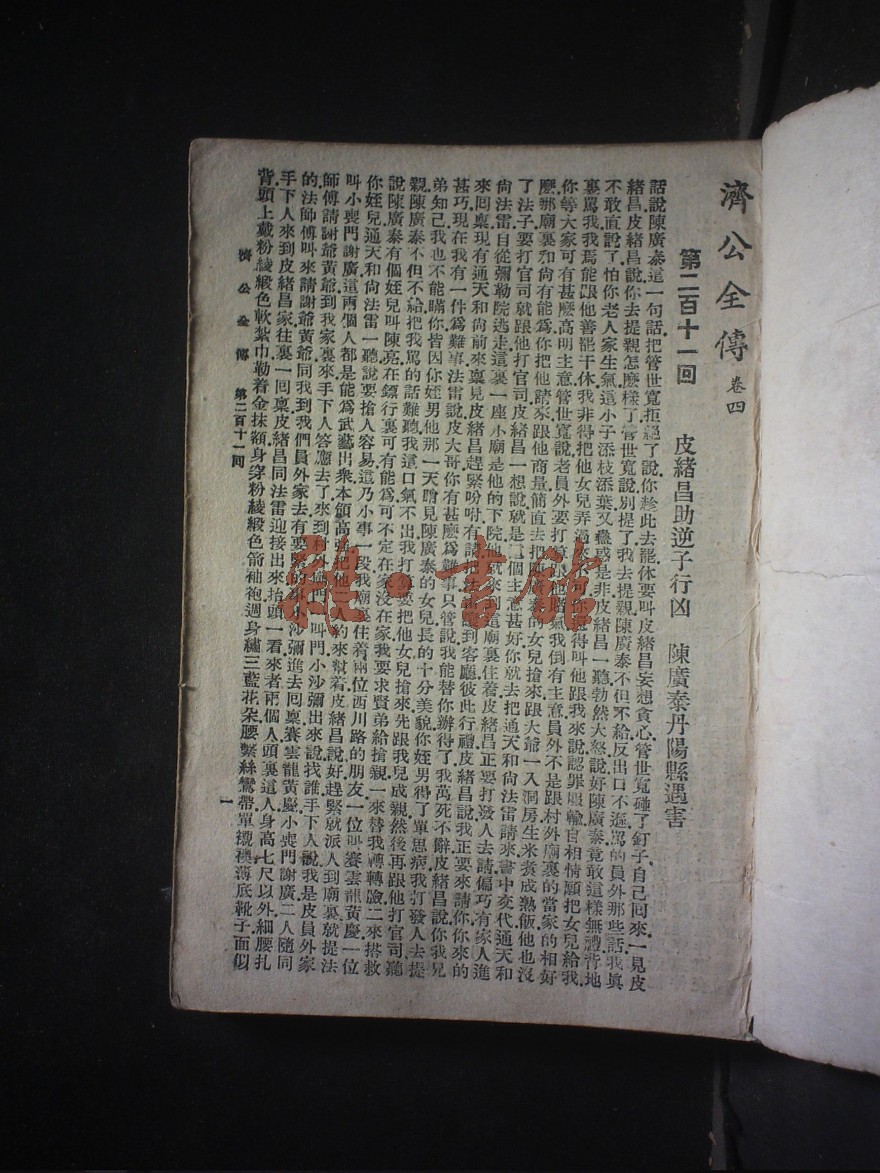 濟公全傳 卷四
第二百十一回 皮緒昌助逆子行凶 陳廣泰丹陽縣遇害
話說陳廣泰這一句話把管世寬拒絕了說你趁此去罷休要叫皮緒昌妄想貪心管世寬碰了釘子自己回來一見皮
緒昌皮緒昌說你去提親怎麽樣了管世寬說別提了我去提親陳廣泰不但不給反出口不遜罵的員外那些話我真
不敢直說了怕你老人家生氣這小子添枝添葉又蠱惑是非皮緒昌一聽勃然大怒說好陳廣泰竟敢這樣無禮背地
裏罵我我焉能跟他善罷干休我非得把他女兒弄過來不可你得叫他跟我來說認罪服輸自相情願把女兒給我
你等大家可有甚麽高明主意管世寬說老員外要打算跟他賭氣我倒有主意員外不是跟村外廟裏的當家的相好
麽那廟裏和尚有能爲你把他請來跟他商量簡直去把陳廣泰的女兒搶來跟大爺一入洞房生米煮成熟飯他也沒
了法子要打官司就跟他打官司皮緒昌一想說就是這個主意甚好你就去把通天和尚法雷請來書中交代通天和
尚法雷自從彌勒院逃走這裏一座小廟是他的下院他就來到這廟裏住着皮緒昌正要打發人去請偏巧有家人進
來回稟現有通天和尚前來稟見皮緒昌趕緊吩咐有請把法雷讓到客廳彼此行禮皮緒昌說我正要來請你你來的
甚巧現在我有一件爲難事法雷說皮大哥你有甚麽爲難事只管說我能替你辦得了我萬死不辭皮緒昌說你我兄
弟知己我也不能瞞你皆因你姪男他那一天瞧見陳廣泰的女兒長的十分美貌你姪男得了單思病我打發人去提
親陳廣泰不但不給把我罵的話難聽我這口氣不出我打算要把他女兒搶來先跟我兒成親然後再跟他打官司聽
說陳廣泰有個姪兒叫陳亮在鏢行裏可有能爲可不定在家沒在家我要求賢弟給搶親一來替我轉轉臉二來搭救
你姪兒通天和尚法雷一聽說要搶人容易這乃小事一段我廟裏住着兩位西川路的朋友一位叫賽雲龍黃慶一位
叫小喪門謝廣這兩個人都是能爲武藝出衆本領高強把他二人約來幫着皮緒昌說好趕緊就派人到廟裏就提法
師傅請謝爺黃爺到我家裏來手下人答應去了來到村外廟門一叫門小沙彌出來說找誰手下人說我是皮員外家
的法師傅叫來請謝爺黃爺同我到我們員外家去有要緊的事小沙彌進去回稟賽雲龍黃慶小喪門謝廣二人隨同
手下人來到皮緒昌家往裏一回稟皮緒昌同法雷迎接出來抬頭一看來者兩個人頭裏這人身高七尺以外細腰扎
背頭上戴粉綾緞色軟紮巾勒着金抹額身穿粉綾緞色箭袖袍週身繡三藍花朵腰繫絲鸞帶單襯襖薄底靴子面似
濟公全傳 第二百十一回 一